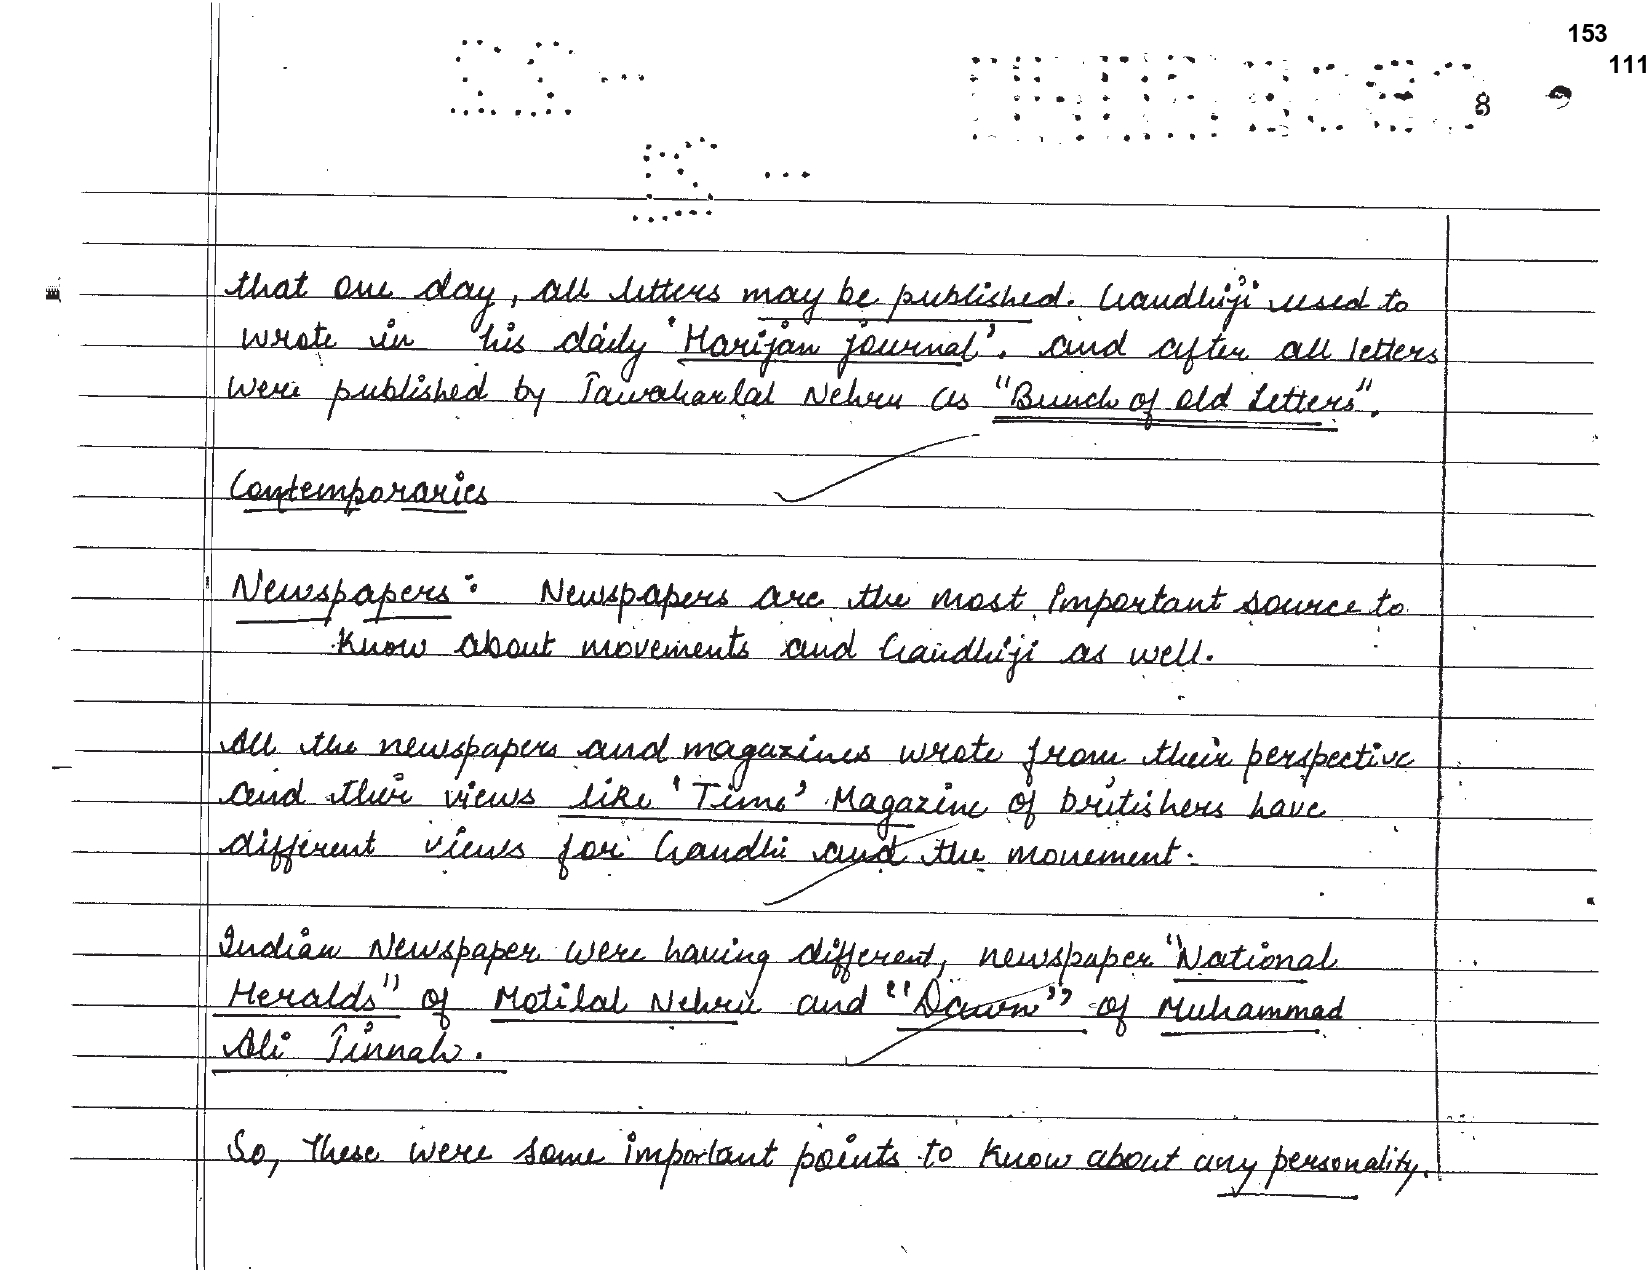 153
111
8
that one day, all letters may be published. Gandhiji used to
wrote in his daily 'Harijan journal'. and after all letters
were published by Jawaharlal Nehru as "Bunch of old Letters".
Contemporaries
Newspapers: Newspapers are the most important source to
know about movements and Gandhiji as well.
All the newspapers and magazines wrote from their perspective
and their views like 'Time' Magazine of britishers have
different views for Gandhi and the movement.
Indian Newspaper were having different, newspaper "National
Heralds" of Motilal Nehru and "Dawn" of Muhammad
Ali Jinnah.
So, these were some important points to know about any personality.